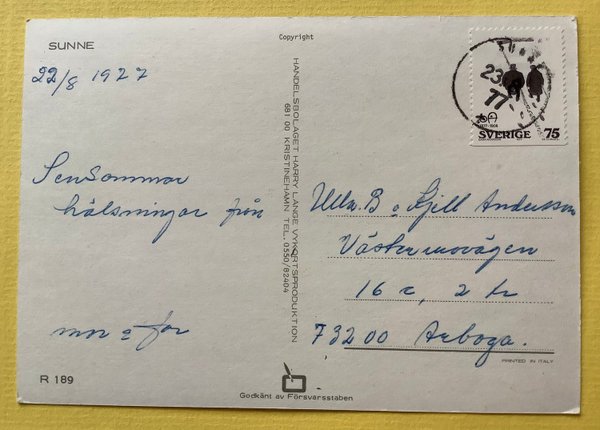 SUNNE
Copyright
22/8 1977
Sensommar
hälsningar från
mor o far
R 189
HANDELSBOLAGET HARRY LANGE VYKORTSPRODUKTION
681 00 KRISTINEHAMN TEL. 0550/82404
Godkänt av Försvarsstaben
23
77
SVERIGE 75
Ulla B o Kjell Andersson
Västermovägen
16 c, 2 tr
73200 Arboga.
PRINTED IN ITALY